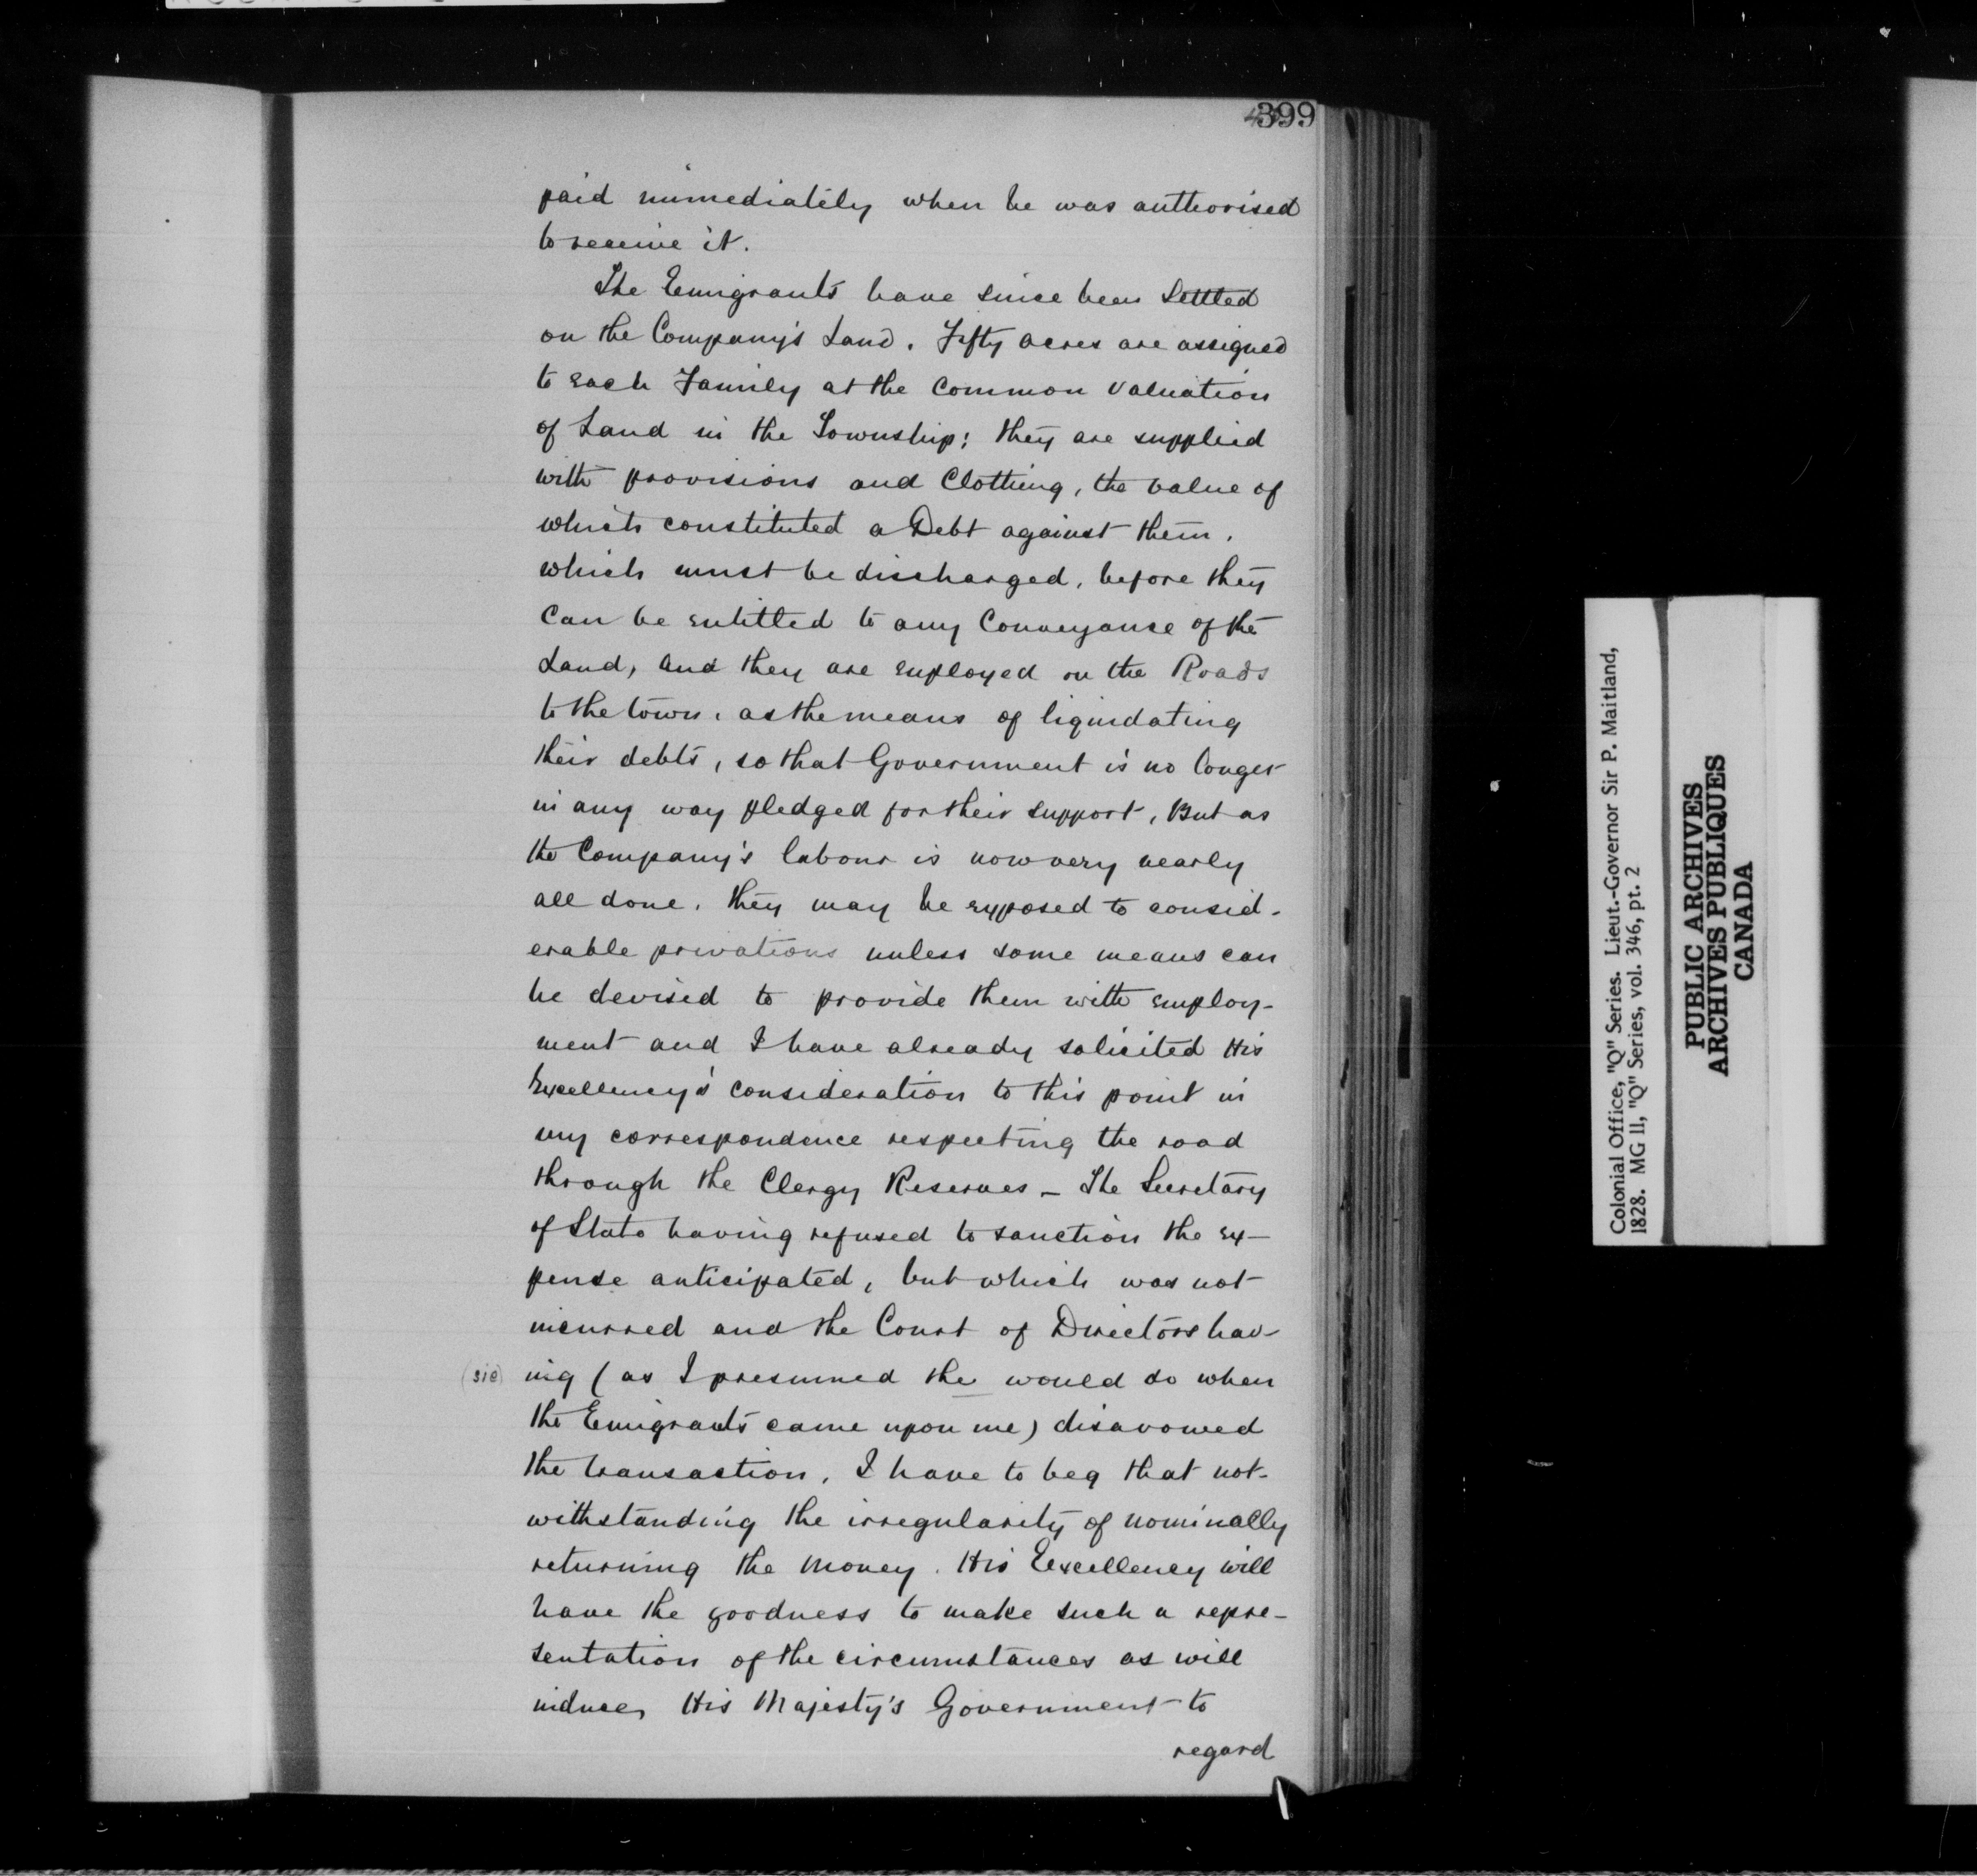 399
paid immediately when he was authorised
to receive it.
The Emigrants have since been Settled
on the Company's Land. Fifty acres are assigned
to each Family at the Common Valuation
of Land in the Township; they are supplied
with provisions and Clothing, the value of
which constituted a Debt against them,
which must be discharged, before they
can be entitled to any Conveyance of the
Land, and they are employed on the Roads
to the town, as the means of liquidating
their debts, so that Government is no longer
in any way pledged for their support, But as
the Company's labour is now very nearly
all done, they may be exposed to consid-
erable privations unless some means can
be devised to provide them with employ-
ment and I have already solicited His
Excellency's consideration to this point in
my correspondence respecting the road
through the Clergy Reserves - The Secretary
of State having refused to sanction the ex-
pense anticipated, but which was not
incurred and the Court of Directors hav-
(sic) ing (as I presumed the would do when
the Emigrants came upon me) disavowed
the transaction, I have to beg that not-
withstanding the irregularity of nominally
returning the money. His Excellency will
have the goodness to make such a repre-
sentation of the circumstances as will
induce, His Majesty's Government to
regard
Colonial Office, "Q" Series. Lieut.-Governor Sir P. Maitland,
1828. MG 11, "Q" Series, vol. 346, pt. 2
PUBLIC ARCHIVES
ARCHIVES PUBLIQUES
CANADA